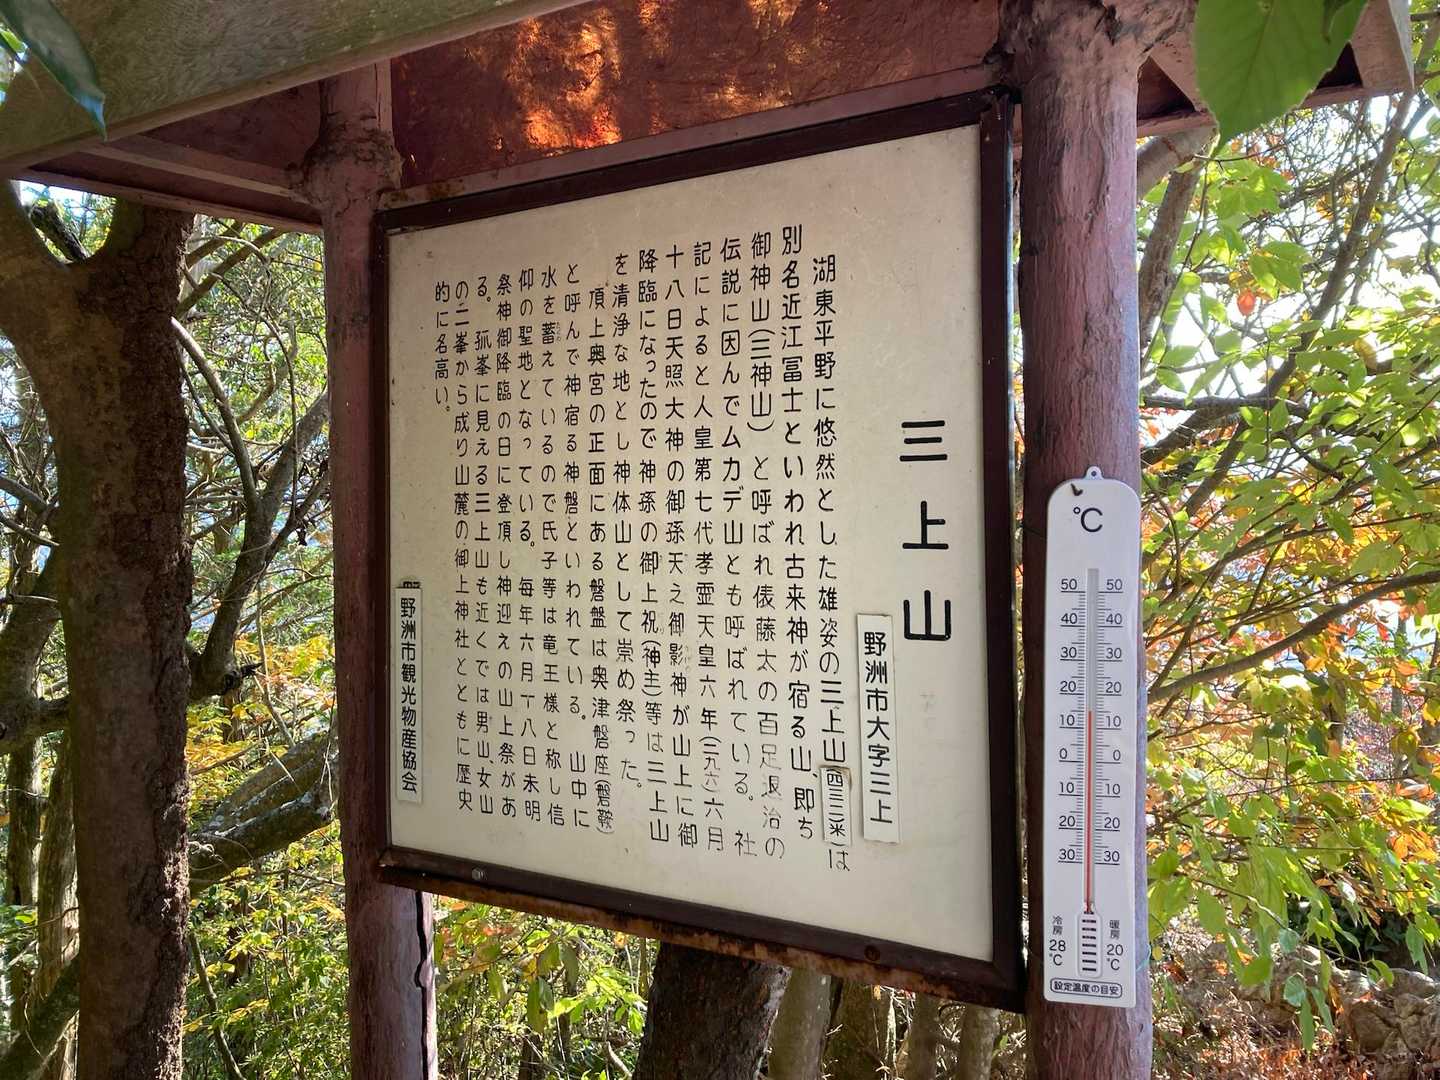 三上山
野洲市大字三上
湖東平野に悠然とした雄姿の三上山(四三二米)は
別名近江冨士といわれ古来神が宿る山、即ち
御神山(三神山)と呼ばれ俵藤太の百足退治の
伝説に因んでムカデ山とも呼ばれている。社
記によると人皇第七代孝霊天皇六年(二九六)六月
十八日天照大神の御孫天之御影神が山上に御
降臨になったので神孫の御上祝(神主)等は三上山
を清浄な地とし神体山として崇め祭った。
頂上奥宮の正面にある磐盤は奥津磐座磐鞍)
と呼んで神宿る神磐といわれている。山中に
水を蓄えているので氏子等は竜王様と称し信
仰の聖地となっている。毎年六月十八日未明
祭神御降臨の日に登頂し神迎えの山上祭があ
る。孤峯に見える三上山も近くでは男山、女山
の二峯から成り山麓の御上神社とともに歴史
的に名高い。
野洲市観光物産協会
℃
50 50
40 40
30 30
20 20
10 10
0 0
10 10
20 20
30 30
冷房 28℃
暖房 20℃
設定温度の目安